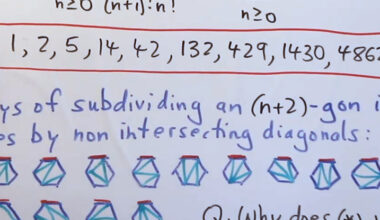 n≥0 (n+1)!n!
n≥0
1, 2, 5, 14, 42, 132, 429, 1430, 4862
of subdividing an (n+2)-gon
by non intersecting diagonals:
Q. Why does (*)